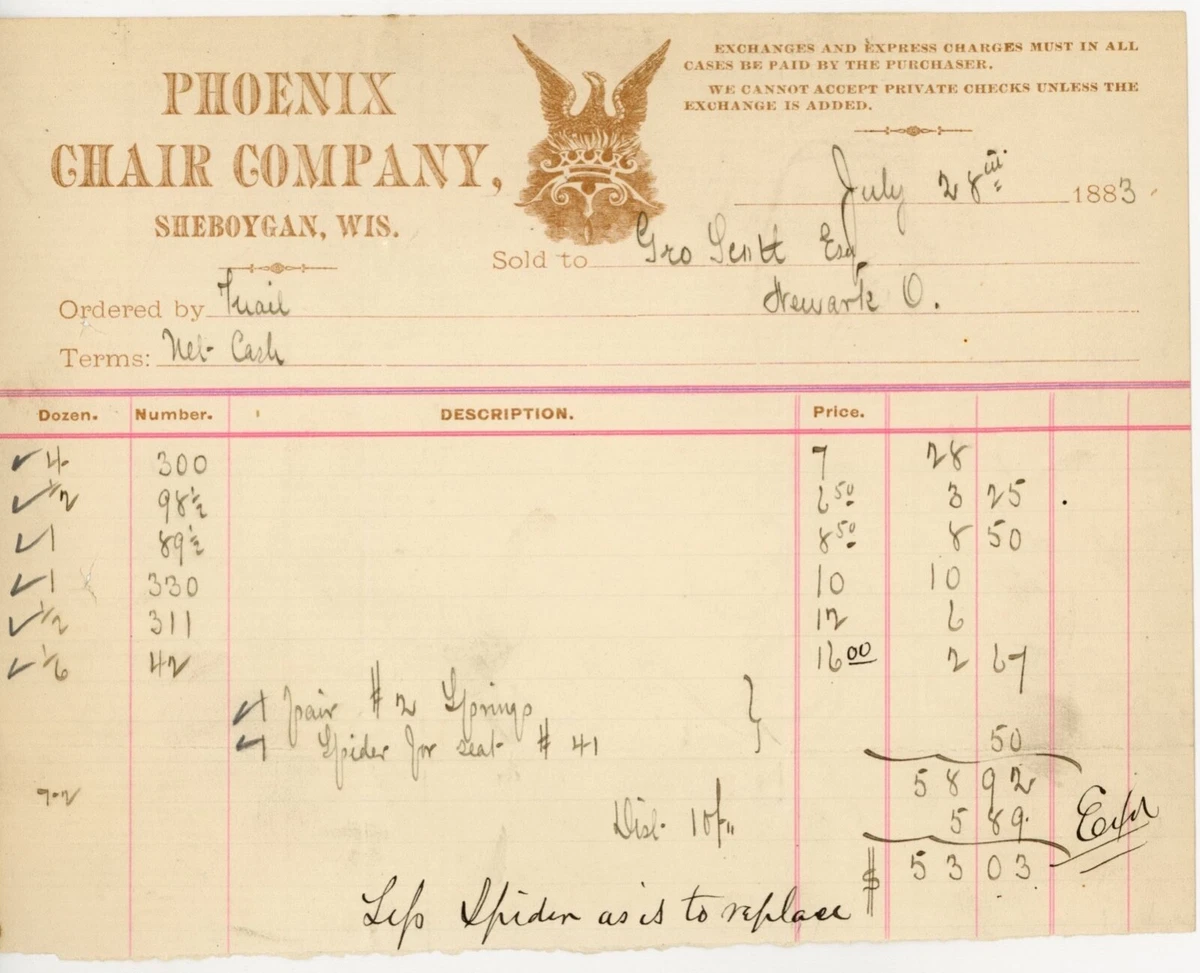 EXCHANGES AND EXPRESS CHARGES MUST IN ALL
CASES BE PAID BY THE PURCHASER.
WE CANNOT ACCEPT PRIVATE CHECKS UNLESS THE
EXCHANGE IS ADDED.
PHOENIX
CHAIR COMPANY,
SHEBOYGAN, WIS.
July 28 1883
Sold to Geo Scott Esq
Newark O.
Ordered by Mail
Terms: Net Cash
Dozen. Number. DESCRIPTION. Price.
✓ 4 300 7 28
✓ 1/2 98 1/2 6 50 3 25
✓ 1 89 1/2 8 50 8 50
✓ 1 330 10 10
✓ 1/2 311 12 6
✓ 1/6 42 16 00 2 67
✓ 1 pair # 2 Springs }
✓ 1 Spider for seat # 41 50
58 92
7-2 Dist 10% 5 89
$ 53 03
Less Spider as is to replace